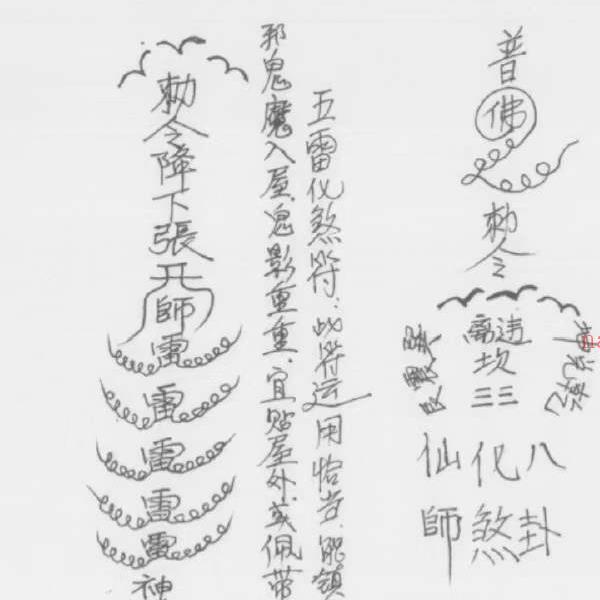 普
佛
勅令
離違
坎
巽震艮
三三
八卦
化煞
仙師
五雷化煞符:此符运用恰当,能鎮
邪鬼魔入屋,鬼影重重,宜贴屋外,或佩带
勅令降下張天師雷雷雷雷雷神